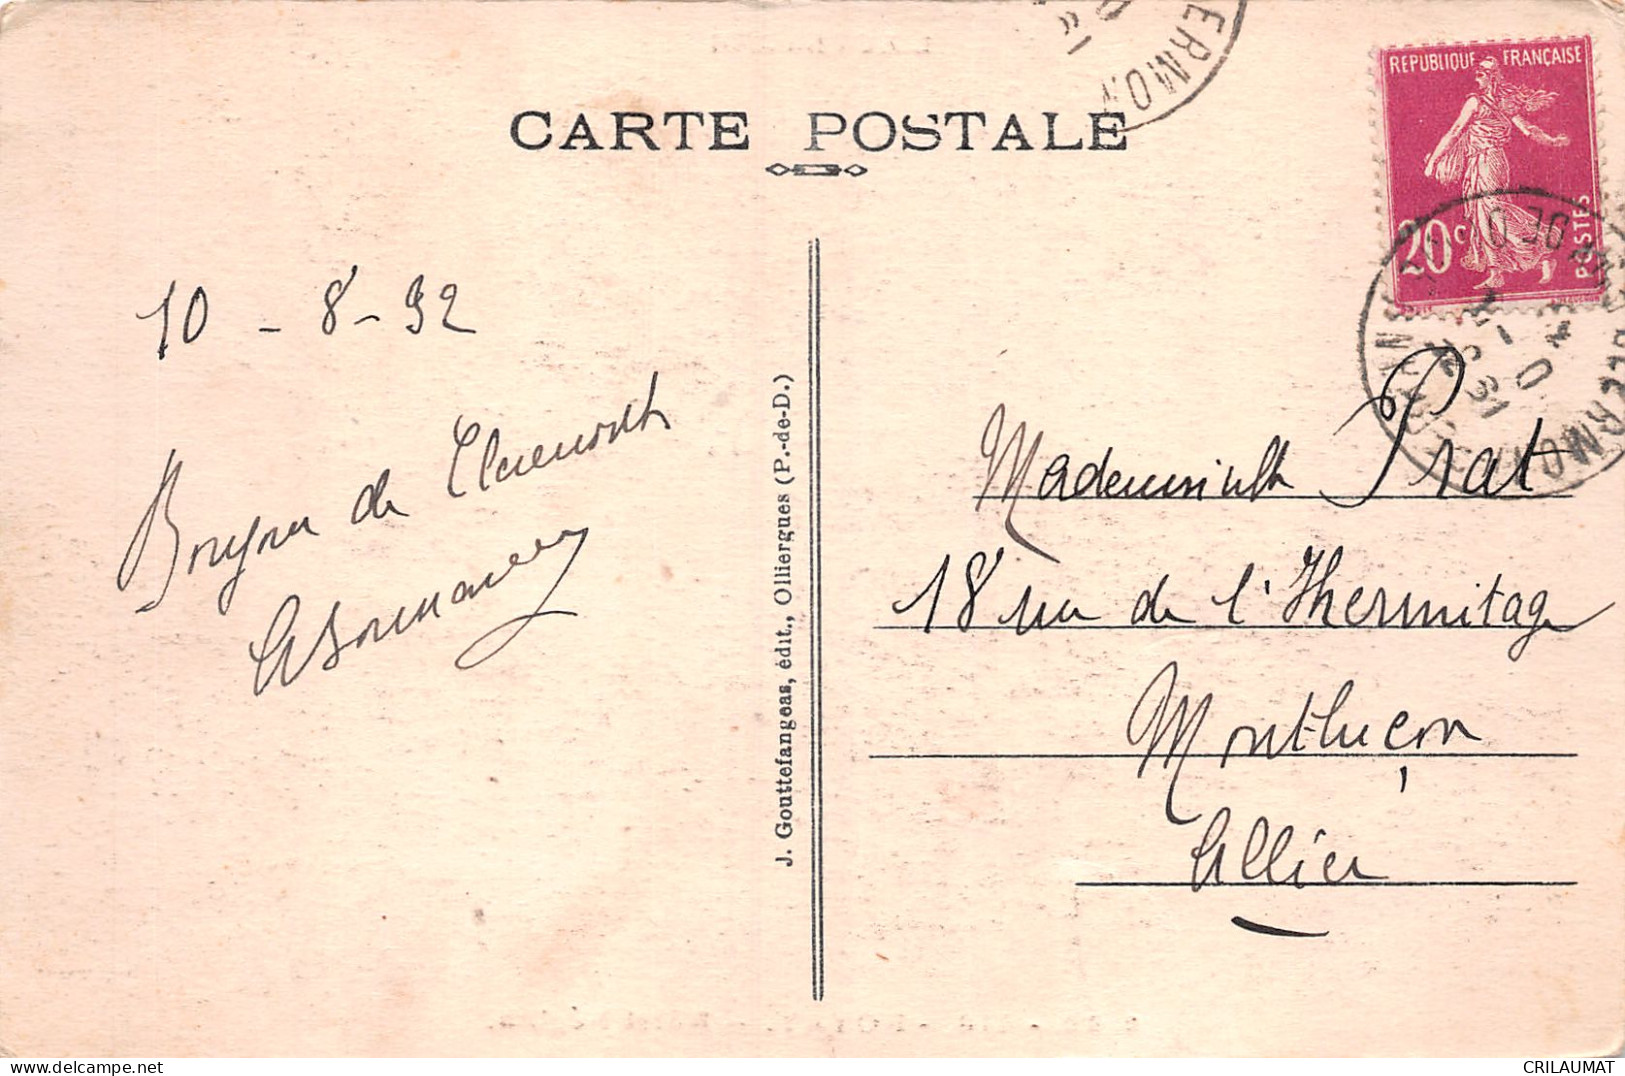 CARTE POSTALE
REPUBLIQUE FRANÇAISE
20c
POSTES
ERMON
10 - 8 - 32
Bonjour de
J. Gouttefangeas, édit., Olliergues (P.-de-D.)
Mademoiselle Prat
18 rue de l'Hermitage
Montluçon
Allier
CRILAUMAT